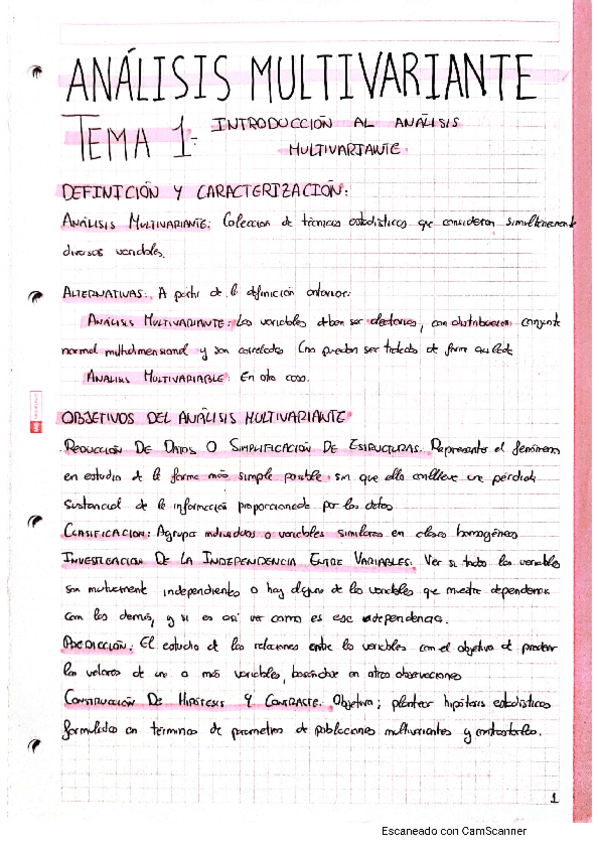 ANÁLISIS MULTIVARIANTE
TEMA 1- INTRODUCCIÓN AL ANÁLISIS
MULTIVARIANTE.
DEFINICIÓN Y CARACTERIZACIÓN:
ANÁLISIS MULTIVARIANTE: Colección de técnicas estadísticas que consideran simultáneament
diversas variables.
ALTERNATIVAS: A partir de la definición anterior:
ANÁLISIS MULTIVARIANTE: Las variables deben ser aleatorias, con distribución conjunta
normal multidimensional y son correladas (no pueden ser tratadas de forma aislada
ANÁLISIS MULTIVARIABLE: En otro caso.
OBJETIVOS DEL ANÁLISIS MULTIVARIANTE
REDUCCIÓN DE DATOS O SIMPLIFICACIÓN DE ESTRUCTURAS. Representa el fenómeno
en estudio de la forma más simple posible, sin que ello conlleve una pérdida
sustancial de la información proporcionada por los datos
CLASIFICACIÓN: Agrupa individuos o variables similares en clases homogéneas
INVESTIGACIÓN DE LA INDEPENDENCIA ENTRE VARIABLES. Ver si todas las variables
son mutuamente independientes o hay alguna de las variables que muestre dependencia
con las demás, y si es así ver como es esa dependencia.
PREDICCIÓN: El estudio de las relaciones entre las variables con el objetivo de predecir
los valores de una o más variables, basándose en otras observaciones
CONSTRUCCIÓN DE HIPÓTESIS Y CONTRASTE. Objetivo; plantear hipótesis estadísticas
formuladas en términos de parámetros de poblaciones multivariantes y contrastarlas.
1
Escaneado con CamScanner